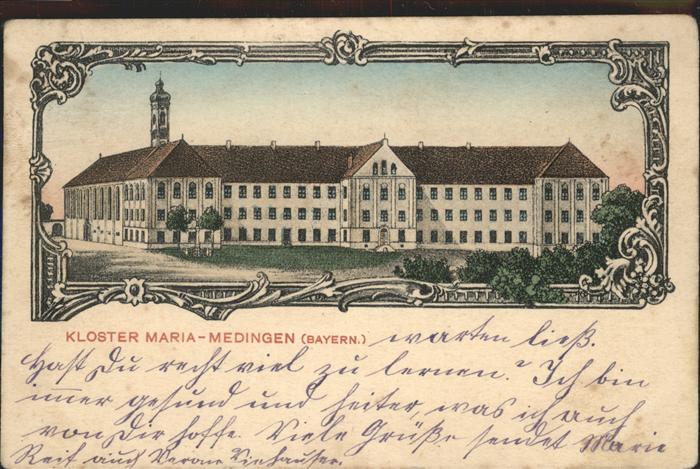 KLOSTER MARIA-MEDINGEN (BAYERN.) warten ließ.
Hast Du recht viel zu lernen? Ich bin
immer gesund und heiter, was ich auch
von Dir hoffe. Viele Grüße sendet Marie
Reif auch